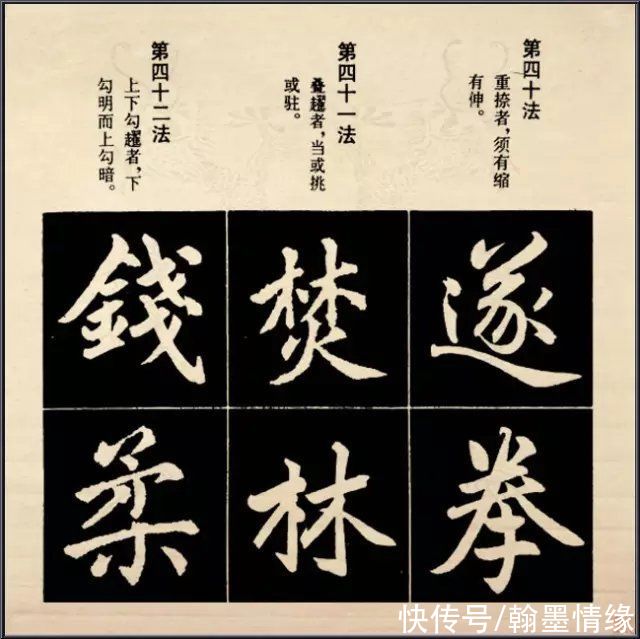 第四十法
重捺者，须有缩
有伸。
第四十一法
叠趯者，当或挑
或驻。
第四十二法
上下勾趯者，下
勾明而上勾暗。
遂拳
焚林
錢柔
快传号/翰墨情缘